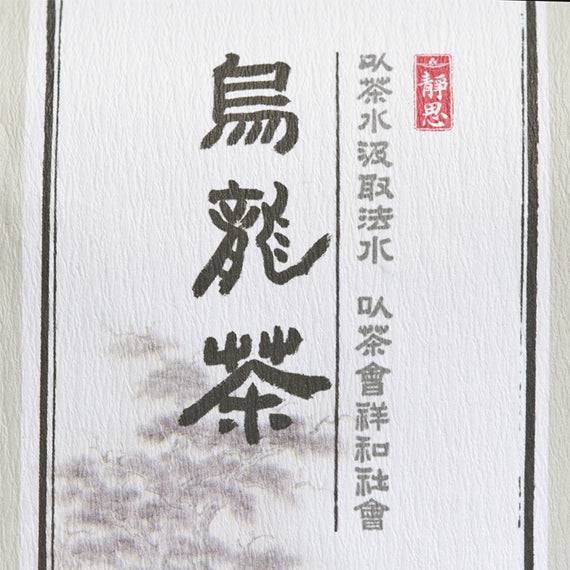 靜思
以茶水汲取法水 以茶會祥和社會
烏龍茶